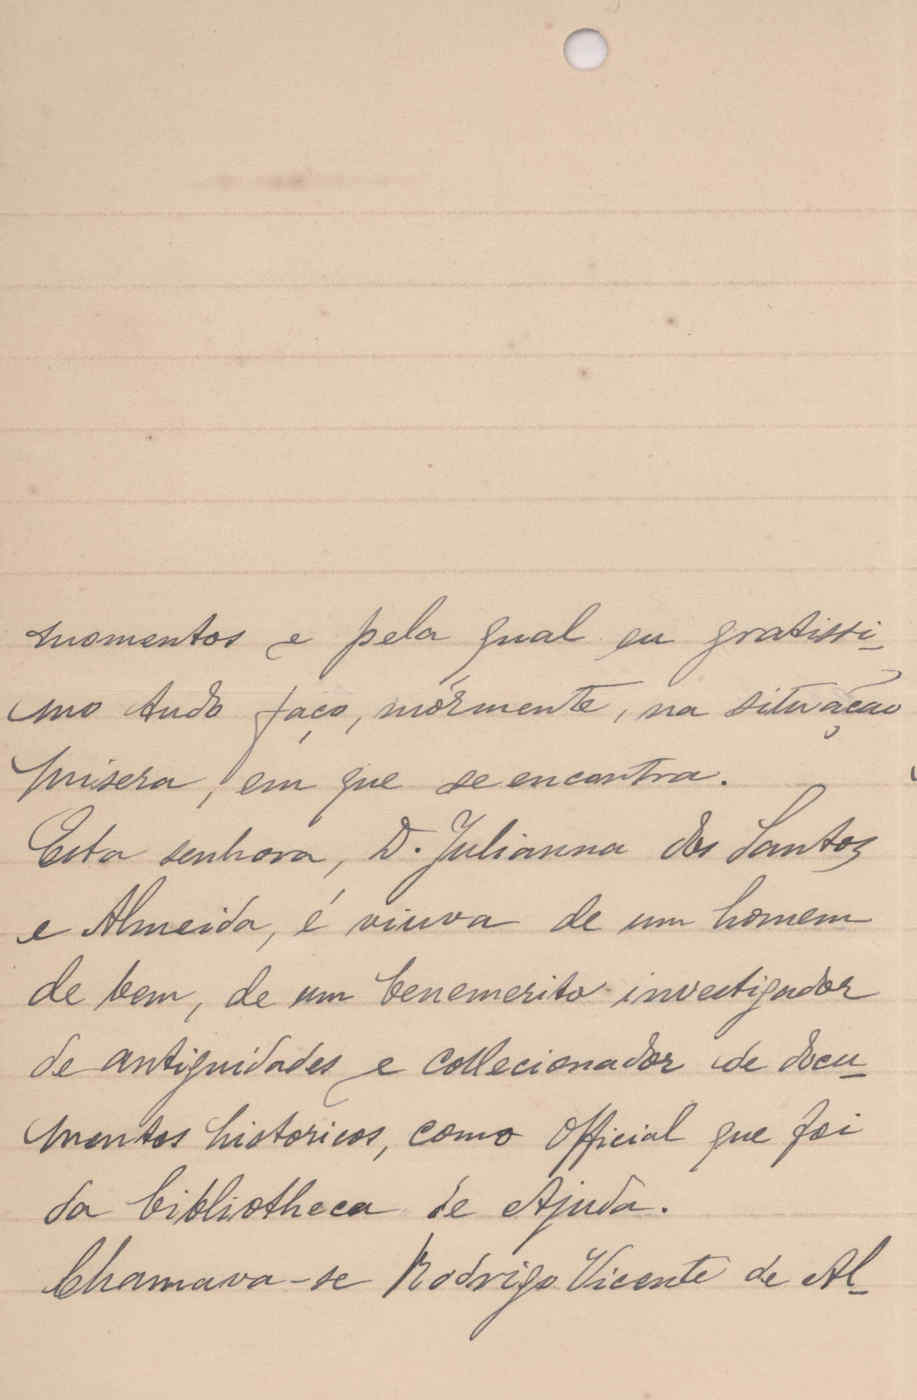 momentos e pela qual eu gratissi-
mo tudo faço, mórmente, na situação
misera, em que se encontra.
Esta senhora, D. Julianna dos Santos
e Almeida, é viuva de um homem
de bem, de um benemerito investigador
de antiguidades e collecionador de docu-
mentos historicos, como official que foi
da bibliotheca de Ajuda.
Chamava-se Rodrigo Vicente de Al-